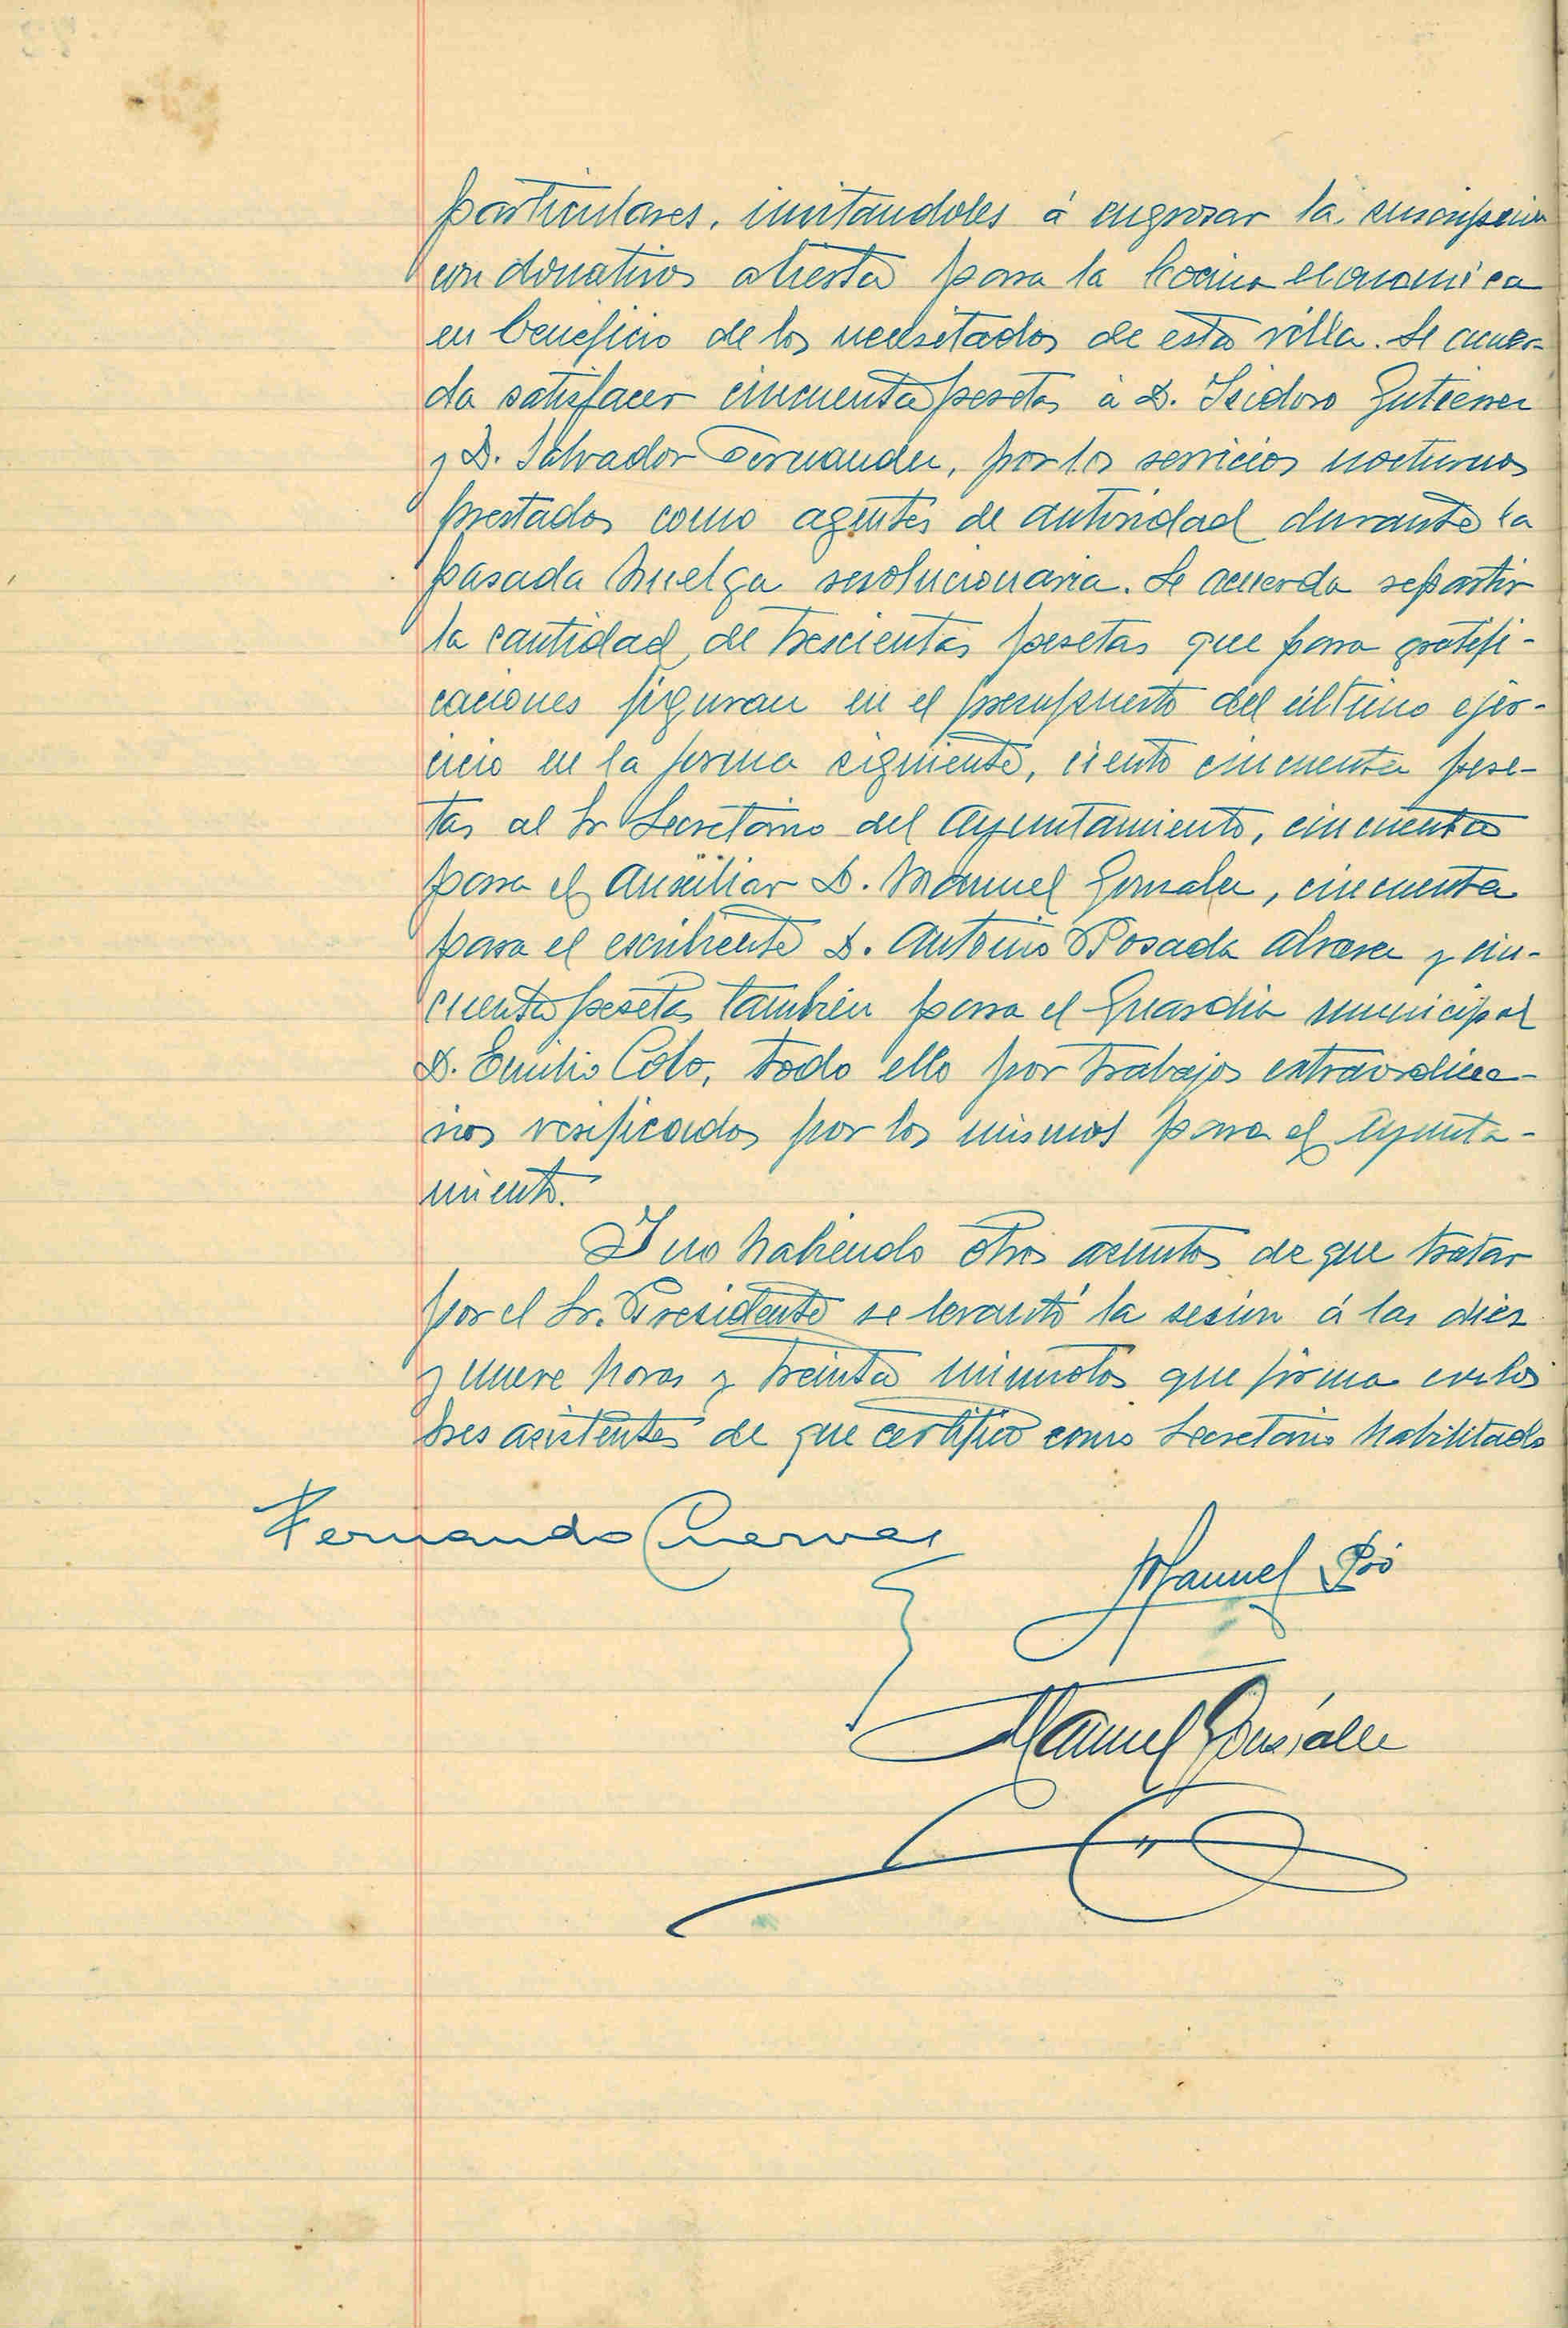 particulares, invitandoles á engrosar la suscripcion
con donativos abierta para la Cocina economica
en beneficio de los necesitados de esta villa. Se acuer-
da satisfacer cincuenta pesetas á D. Isidoro Gutierrez
y D. Salvador Fernandez, por los servicios nocturnos
prestados como agentes de autoridad durante la
pasada huelga revolucionaria. Se acuerda repartir
la cantidad de trescientas pesetas que para gratifi-
caciones figuran en el presupuesto del último ejer-
cicio en la forma siguiente, ciento cincuenta pese-
tas al Sr Secretario del Ayuntamiento, cincuenta
para el Auxiliar D. Manuel Gonzalez, cincuenta
para el escribiente D. Antonio Posada Alvarez y cin-
cuenta pesetas tambien para el Guardia municipal
D. Emilio Coto, todo ello por trabajos extraordina-
rios verificados por los mismos para el Ayunta-
miento.
Y no habiendo otros asuntos de que tratar
por el Sr. Presidente se levantó la sesion á las diez
y nueve horas y treinta minutos que firma con los
tres asistentes de que certifico como Secretario habilitado
Fernando Cuervas
Manuel
Manuel González